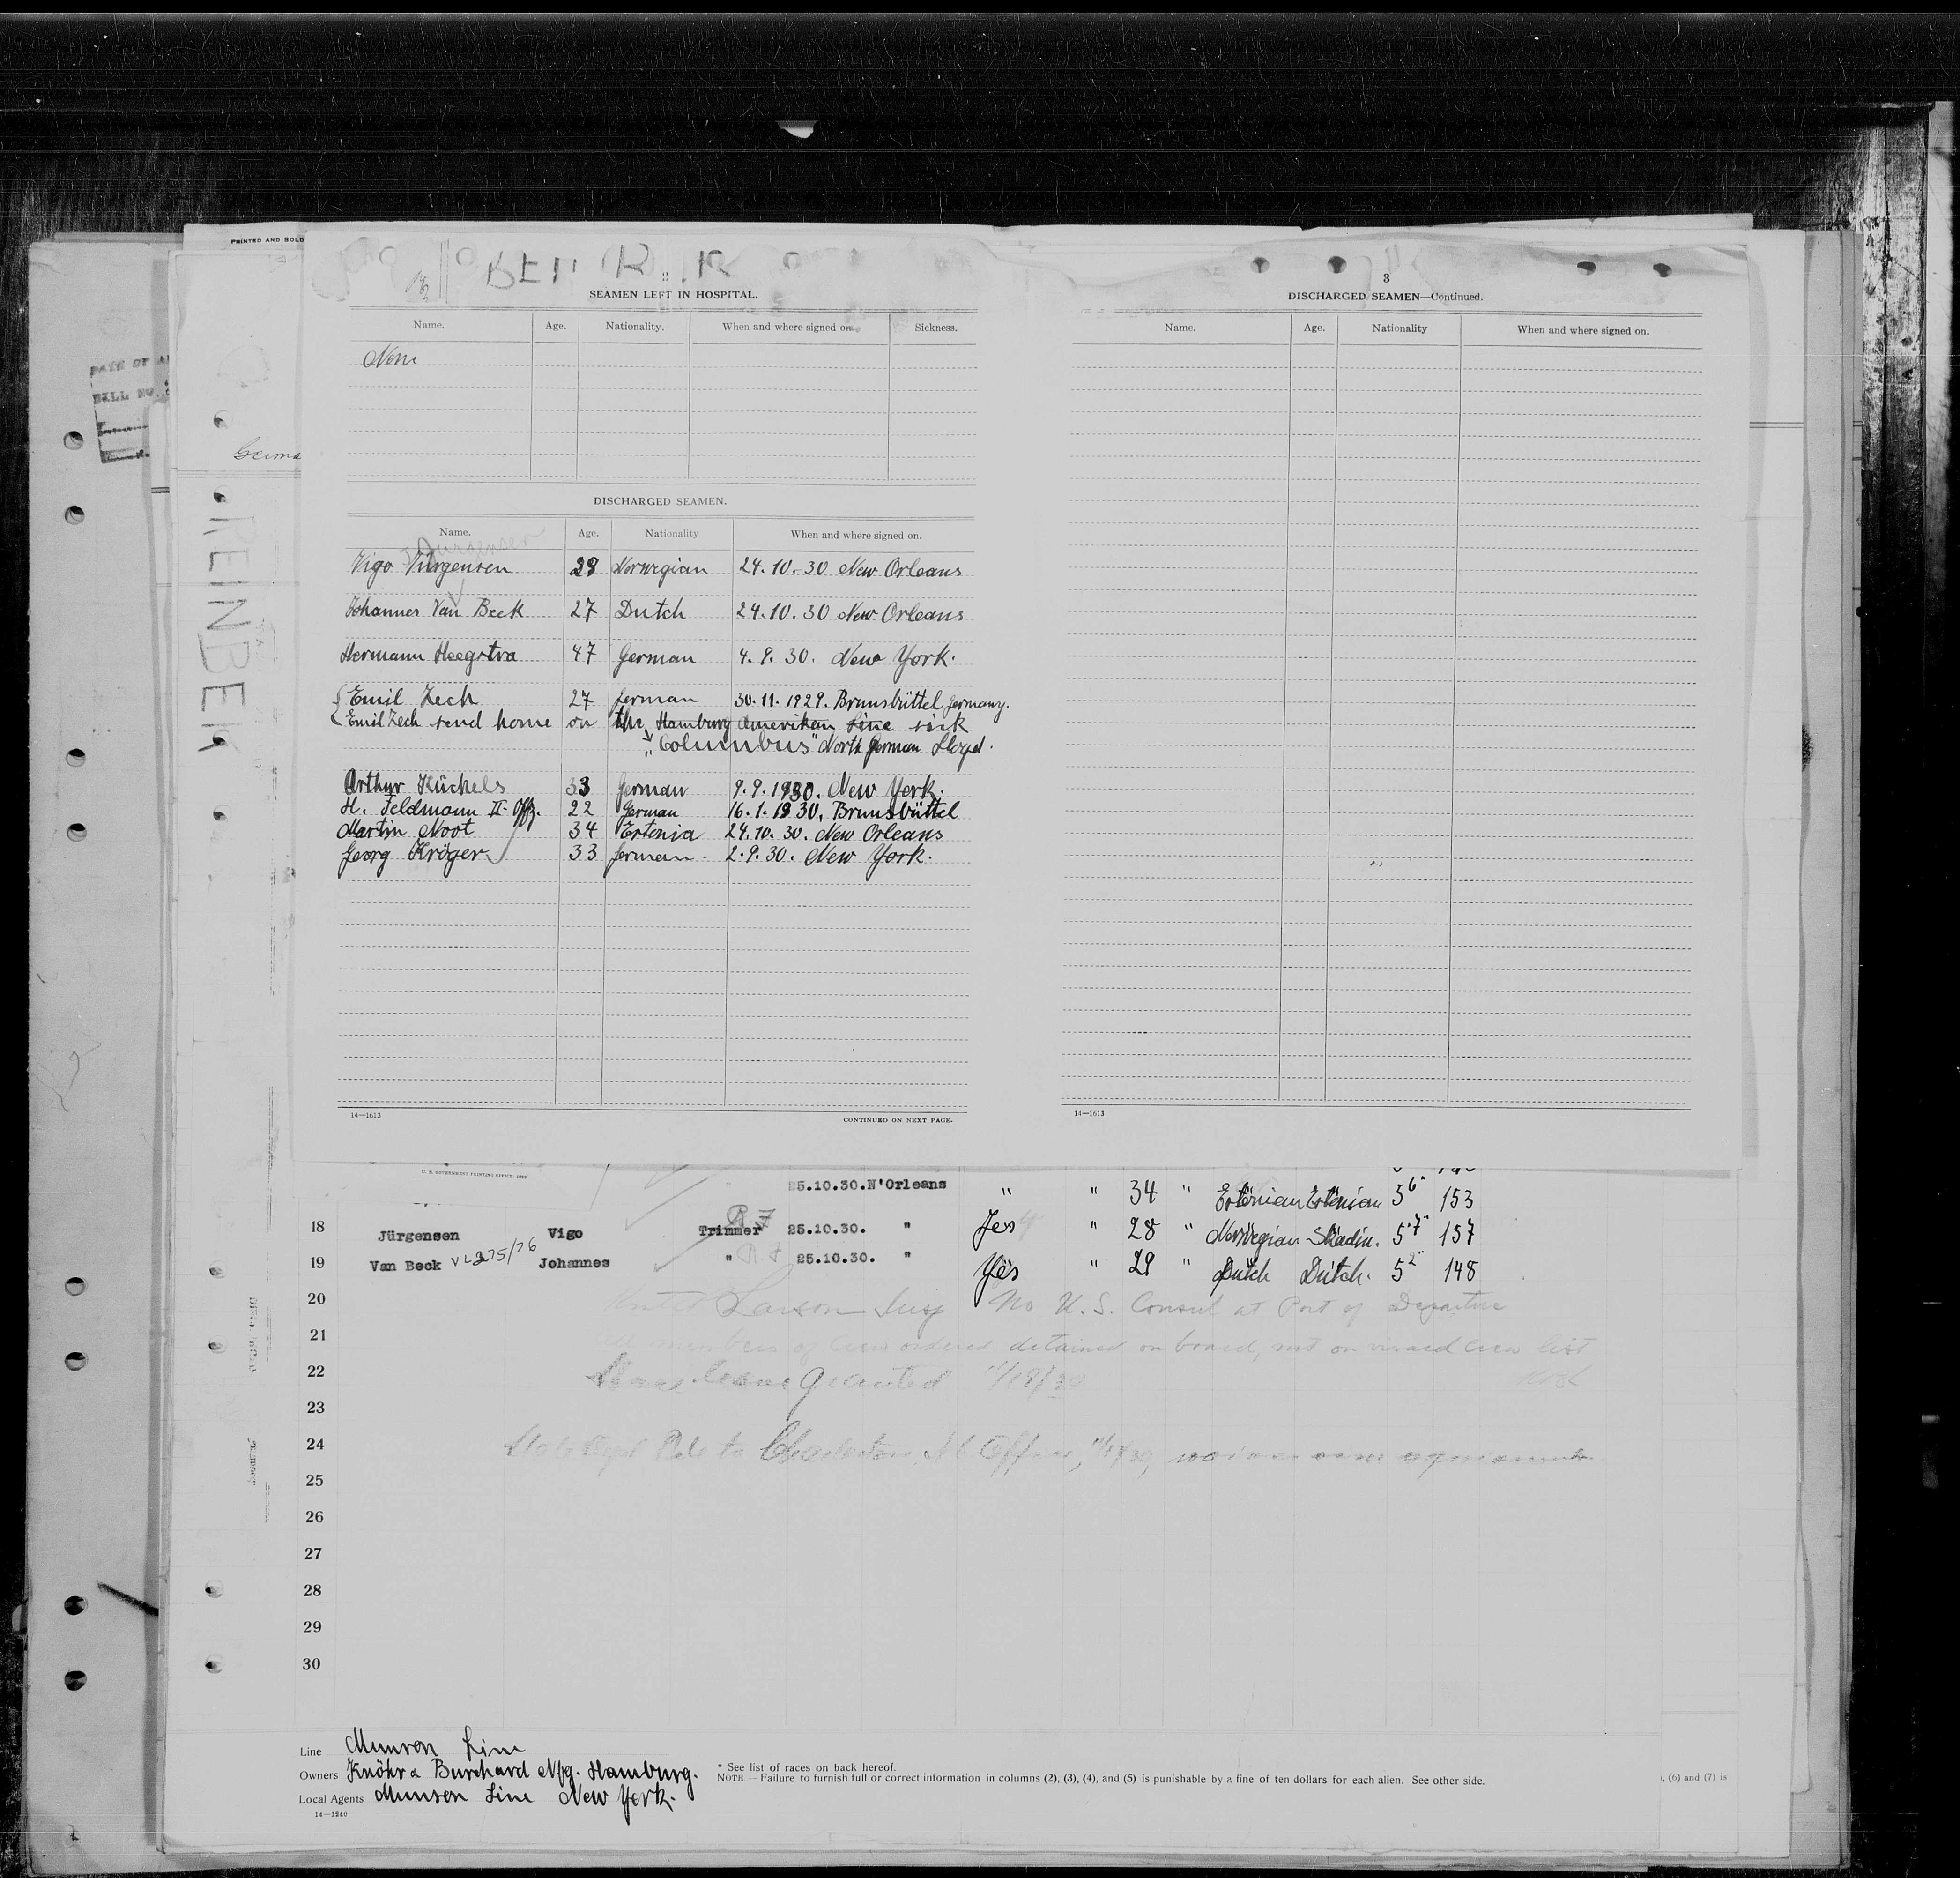 PRINTED AND SOLD
2
SEAMEN LEFT IN HOSPITAL.
Name. Age. Nationality. When and where signed on. Sickness.
None
DISCHARGED SEAMEN.
Name. Age. Nationality When and where signed on.
Jurgensen
Vigo Jürgensen 28 Norwegian 24.10.30 New Orleans
Johannes Van Beek 27 Dutch 24.10.30 New Orleans
Hermann Heegstra 47 German 4.9.30. New York.
Emil Zech 27 German 30.11.1929. Brunsbüttel Germany.
Emil Zech send home on the Hamburg Ameriken Line sick
"Columbus" North German Lloyd.
Arthur Küchels 33 German 9.9.1930. New York.
H. Feldmann II Offz. 22 German 16.1.1930. Brunsbüttel
Martin Noot 34 Estonia 24.10.30. New Orleans
Georg Kröger 33 German. 2.9.30. New York.
14—1613
CONTINUED ON NEXT PAGE.
3
DISCHARGED SEAMEN—Continued.
Name. Age. Nationality When and where signed on.
14—1613
DATE OF
BILL NO
Germa
REINBEK
U. S. GOVERNMENT PRINTING OFFICE
25.10.30.N'Orleans " " 34 " Estonian Estonian 5 6" 153
18 Jürgensen Vigo Trimmer 25.10.30. " Yes " 28 " Norwegian Skadin. 5'7" 157
19 Van Beck Johannes " 25.10.30. " Yes " 29 " Dutch Dutch. 5 2" 148
20 Larson No U.S. Consul at Port of Departure
21 members of crew ordered detained on board, not on visaed crew list
22 leave granted
23
24 to Charleston
25
26
27
28
29
30
Line Munson Line
Owners Knöhr & Burchard Nfg. Hamburg.
Local Agents Munson Line New York.
14—1240
* See list of races on back hereof.
NOTE.—Failure to furnish full or correct information in columns (2), (3), (4), and (5) is punishable by a fine of ten dollars for each alien. See other side.
, (6) and (7) is